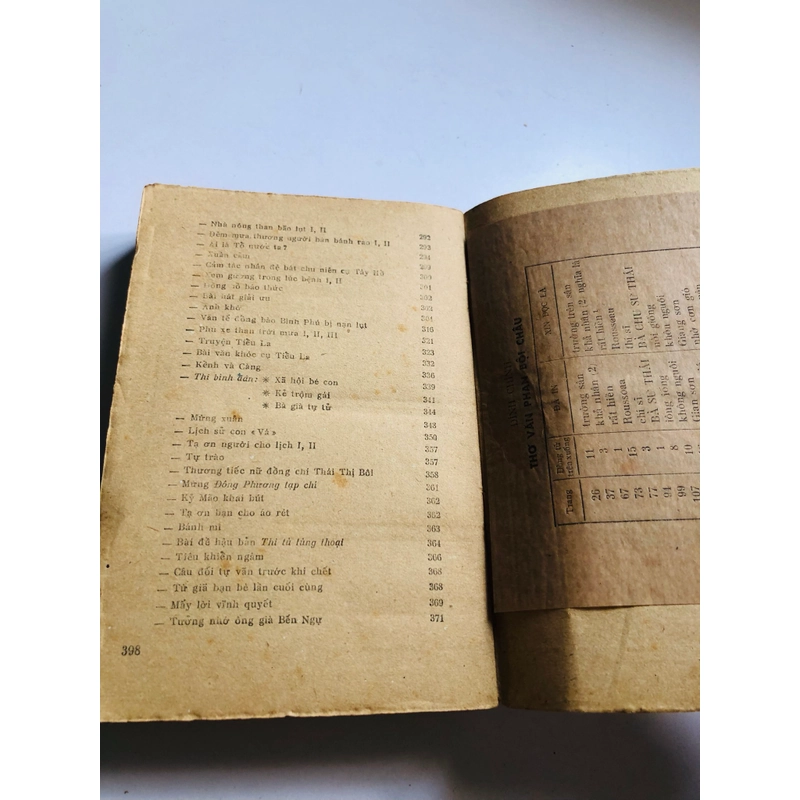 — Nhà nông than bần lụt I, II 292
— Đêm mưa thương người bán bánh rao I, II 293
— Ai là Tổ nước ta? 294
— Xuân cảm 299
— Cảm tác nhân đệ bát chu niên cụ Tây Hồ 300
— Xem gương trong lúc bệnh I, II 301
— Đồng hồ báo thức 302
— Bài hát giải ưu
— Anh khờ 321
— Văn tế đồng bào Bình Phú bị nạn lụt 384
— Phu xe than trời mưa I, II, III 316
— Truyện Tiêu La 321
— Bài văn khóc cụ Tiêu La 323
— Kềnh và Càng 332
— Thi bình dân: * Xã hội bé con 336
* Kẻ trộm gái 339
* Bà già tự tử 341
— Mừng xuân 344
— Lịch sử con «Vá» 348
— Tạ ơn người cho lịch I, II 350
— Tự trào 357
— Thương tiếc nữ đồng chí Thái Thị Bôi 357
— Mừng Đông Phương tạp chí 358
— Kỷ Mão khai bút 361
— Tạ ơn bạn cho áo rét 362
— Bánh mì 362
— Bài đề hậu bản Thi tù tùng thoại 363
— Tiêu khiển ngâm 364
— Câu đối tự vãn trước khi chết 366
— Từ giã bạn bè lần cuối cùng 368
— Mấy lời vĩnh quyết 368
— Tưởng nhớ ông già Bến Ngự 369
371
398
THƠ VĂN PHAN BỘI CHÂU
Trang
XIN ĐỌC LÀ
26 11 trường sán trường trên sán
37 3 khả nhân 2, khả nhân 2 nghĩa là
67 1 rất hiên rất hiên
73 15 Roussoau Rousseau
77 3 chi sĩ chí sĩ
94 1 BÀ SƯ THÁI BÀ CHU SƯ THÁI
99 8 iông jong nòi giống
107 10 không người khôn người